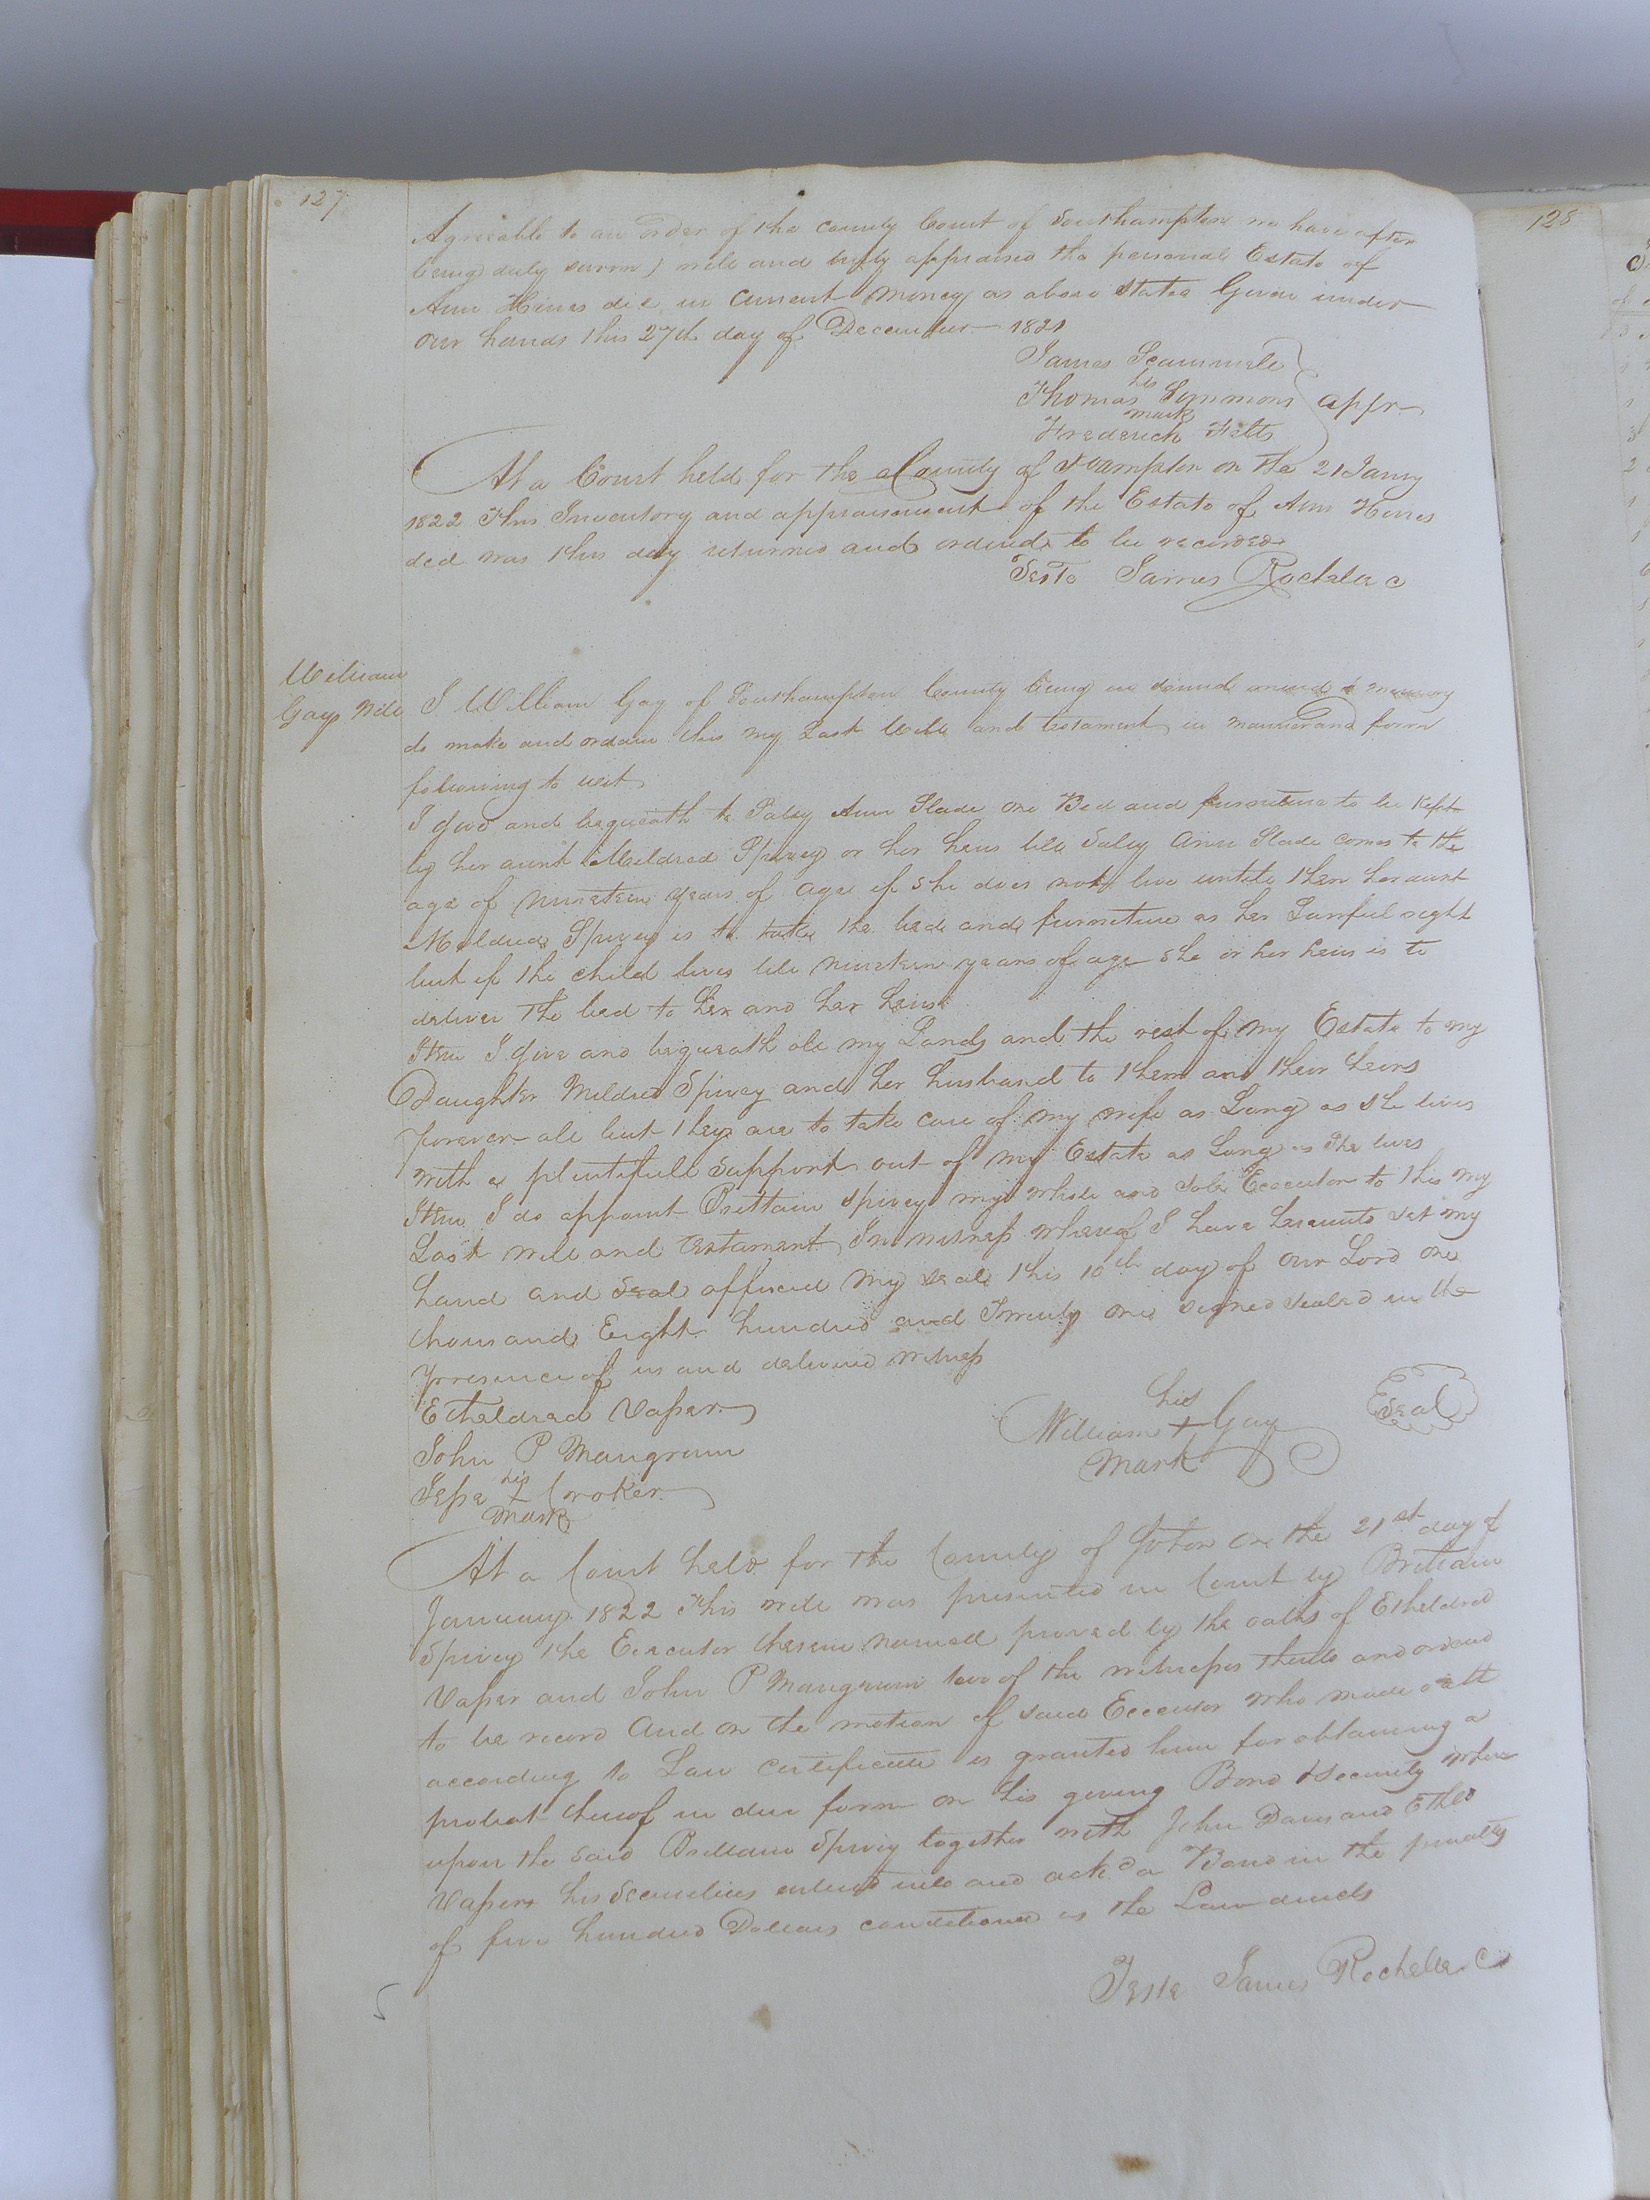 127
Agreeable to an order of the county Court of Southampton we have after
being duly sworn) well and truly appraised the personal Estate of
Ann Hines dec in Current Money as above States Given under
our hands this 27th day of December 1821
James Scammell
his
Thomas Simmons appr
mark
Frederick Felts
At a Court held for the County of SHampton on the 21 Jany
1822 This Inventory and appraisement of the Estate of Ann Hines
decd was this day returned and ordered to be recorded
Teste James Rochelle C
William
Gays Will
I William Gay of Southampton County being in sound mind & memory
do make and ordain this my Last Will and testament in manner and form
following to wit
I give and bequeath to Saley Ann Slade one Bed and furniture to be kept
by her aunt Mildred Spivey or her heirs till Saley Ann Slade comes to the
age of nineteen years of age if she does not live untile then her aunt
Mildred Spivey is to take the bed and furniture as her Lawful right
but if the child lives till nineteen years of age she or her heirs is to
deliver the bed to her and her heirs
Item I give and bequeath all my Lands and the rest of my Estate to my
Daughter Mildred Spivey and her husband to them and their heirs
forever all but they are to take care of my wife as Long as she lives
with a plentifull Support out of my Estate as Long as she lives
Item I do appoint Brittain Spivey my whole and sole Executor to this my
Last will and testament In witness whereof I have hereunto set my
hand and seal affixed my seal this 10th day of our Lord one
thousand Eight hundred and Twenty one signed sealed in the
presence of us and delivered witness
Etheldred Vaser
John P Mangrum
Jesse his + Croker
mark
his
William + Gay
mark
Seal
At a Court held for the County of Soton on the 21st day of
January 1822 This will was presented in Court by Brittain
Spivey the Executor therein named proved by the oaths of Etheldred
Vaser and John P Mangrum two of the witnesses thereto and ordered
to be record And on the motion of said Executor who made oath
according to Law certificate is granted him for obtaining a
probat thereof in due form on his giving Bond & security where
upon the said Brittain Spivey together with John Davis and Etheld
Vaser his securities entered into and ackd a Bond in the penalty
of five hundred Dollars conditioned as the Law directs
Teste James Rochelle C
128